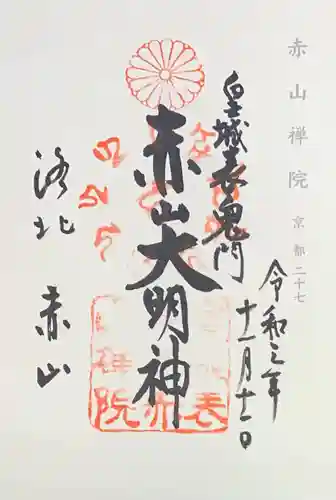 赤山禅院 京都二十七
皇城表鬼門
赤山大明神
洛北 赤山
令和三年
十一月十一日